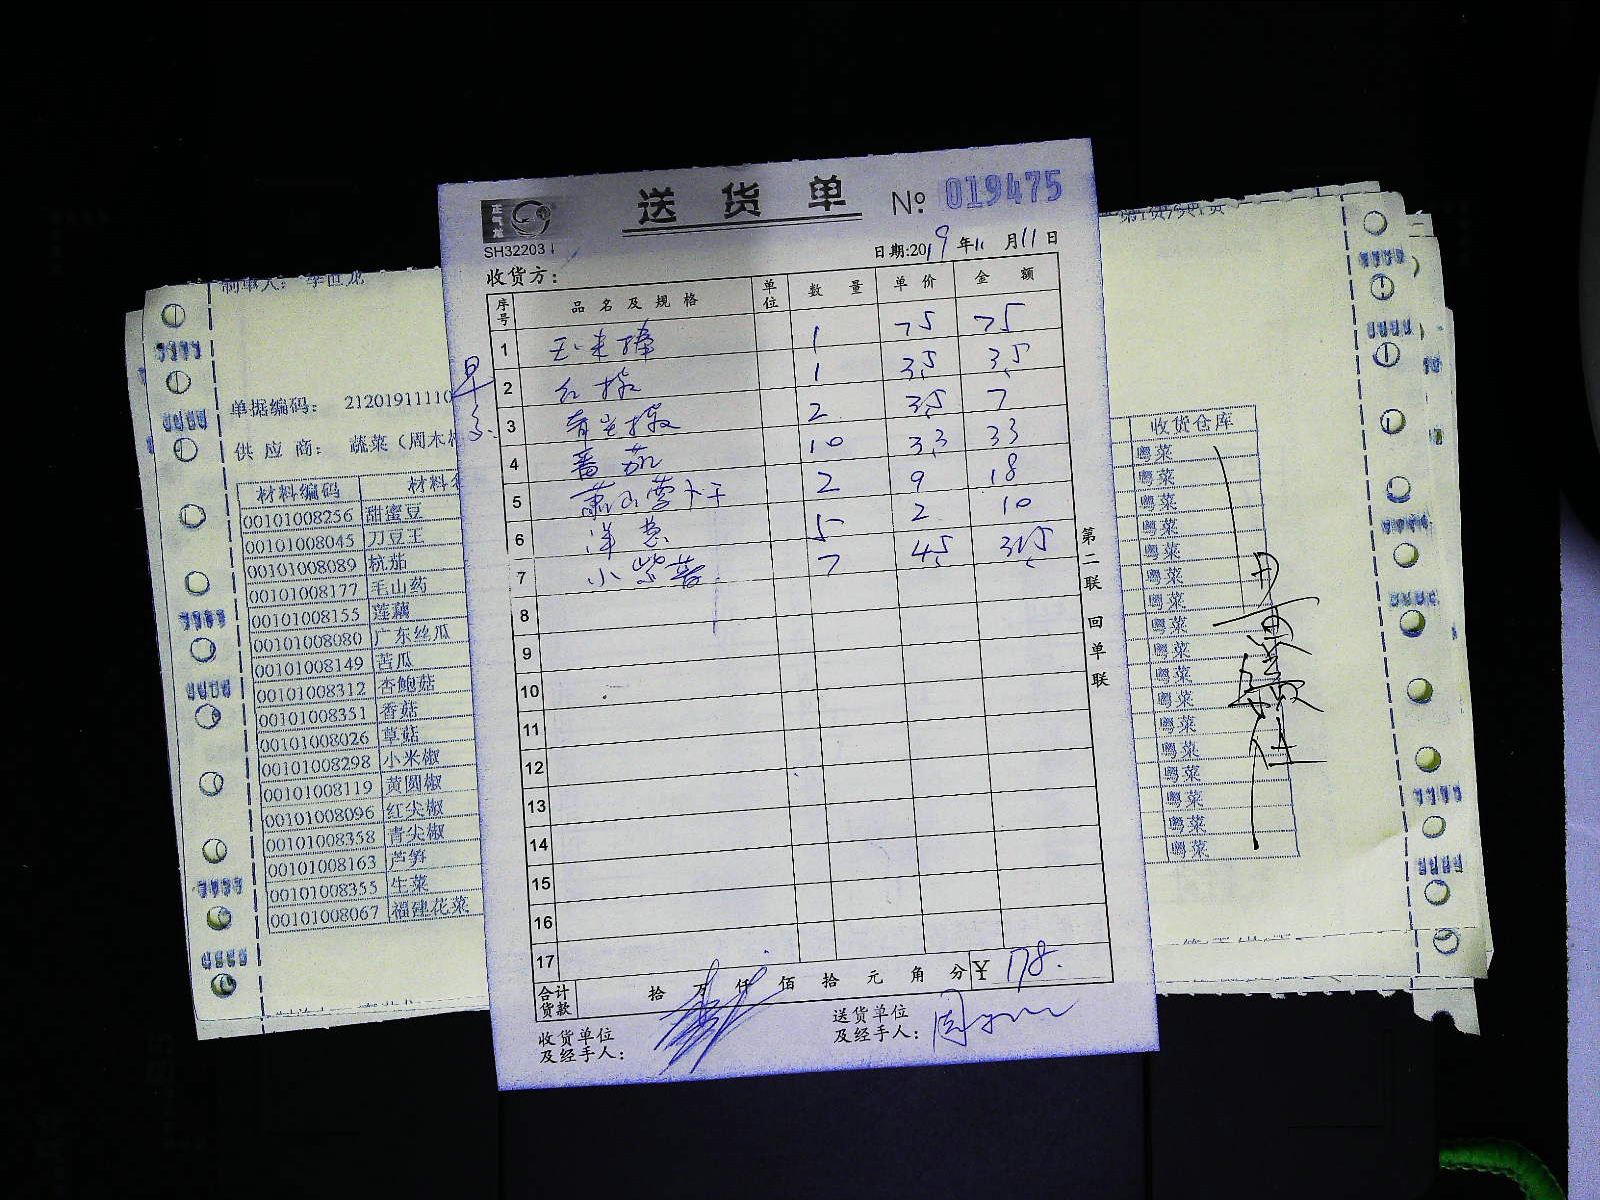 送货单 № 019475
正气龙
SH32203
日期:2019年11月11日
收货方:
序号 品名及规格 单位 数量 单价 金额
1 玉米棒 1 75 75
2 红椒 1 3.5 3.5
3 青尖椒 2 3.5 7
4 番茄 10 3.3 33
5 萧山萝卜干 2 9 18
6 洋葱 5 2 10
7 小紫薯 7 4.5 31.5
8
9
10
11
12
13
14
15
16
17
合计货款 拾 万 仟 佰 拾 元 角 分 ¥ 178.
收货单位及经手人:
送货单位及经手人: 周
第二联 回单联
制单人: 李世龙
单据编码: 2120191110
供应商: 蔬菜(周木
材料编码 材料
00101008256 甜蜜豆
00101008045 刀豆王
00101008089 杭茄
00101008177 毛山药
00101008155 莲藕
00101008080 广东丝瓜
00101008149 苦瓜
00101008312 杏鲍菇
00101008351 香菇
00101008026 草菇
00101008298 小米椒
00101008119 黄圆椒
00101008096 红尖椒
00101008358 青尖椒
00101008163 芦笋
00101008355 生菜
00101008067 福建花菜
收货仓库
粤菜
粤菜
粤菜
粤菜
粤菜
粤菜
粤菜
粤菜
粤菜
粤菜
粤菜
粤菜
粤菜
粤菜
粤菜
粤菜
粤菜